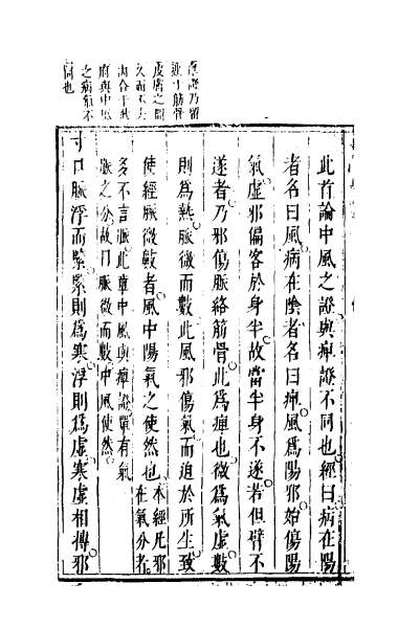 痺證乃留
於筋骨
皮膚之間
久而不去
內合于
府與中風
之病氣不
同也
此首論中風之證與痺證不同也經曰病在陽
者名曰風病在陰者名曰痺風爲陽邪始傷陽
氣虛邪偏客於身半故當半身不遂者但臂不
遂者乃邪傷脈絡筋骨此爲痺也微爲氣虛數
則爲熱脈微而數此風邪傷氣而迫於所生致
使經脈微數者風中陽氣之使然也本經凡邪在氣分者
多不言脈此章中風與痺證單有氣
脈之分故曰脈微而數中風使然
寸口脈浮而緊緊則爲寒浮則爲虛寒虛相搏邪